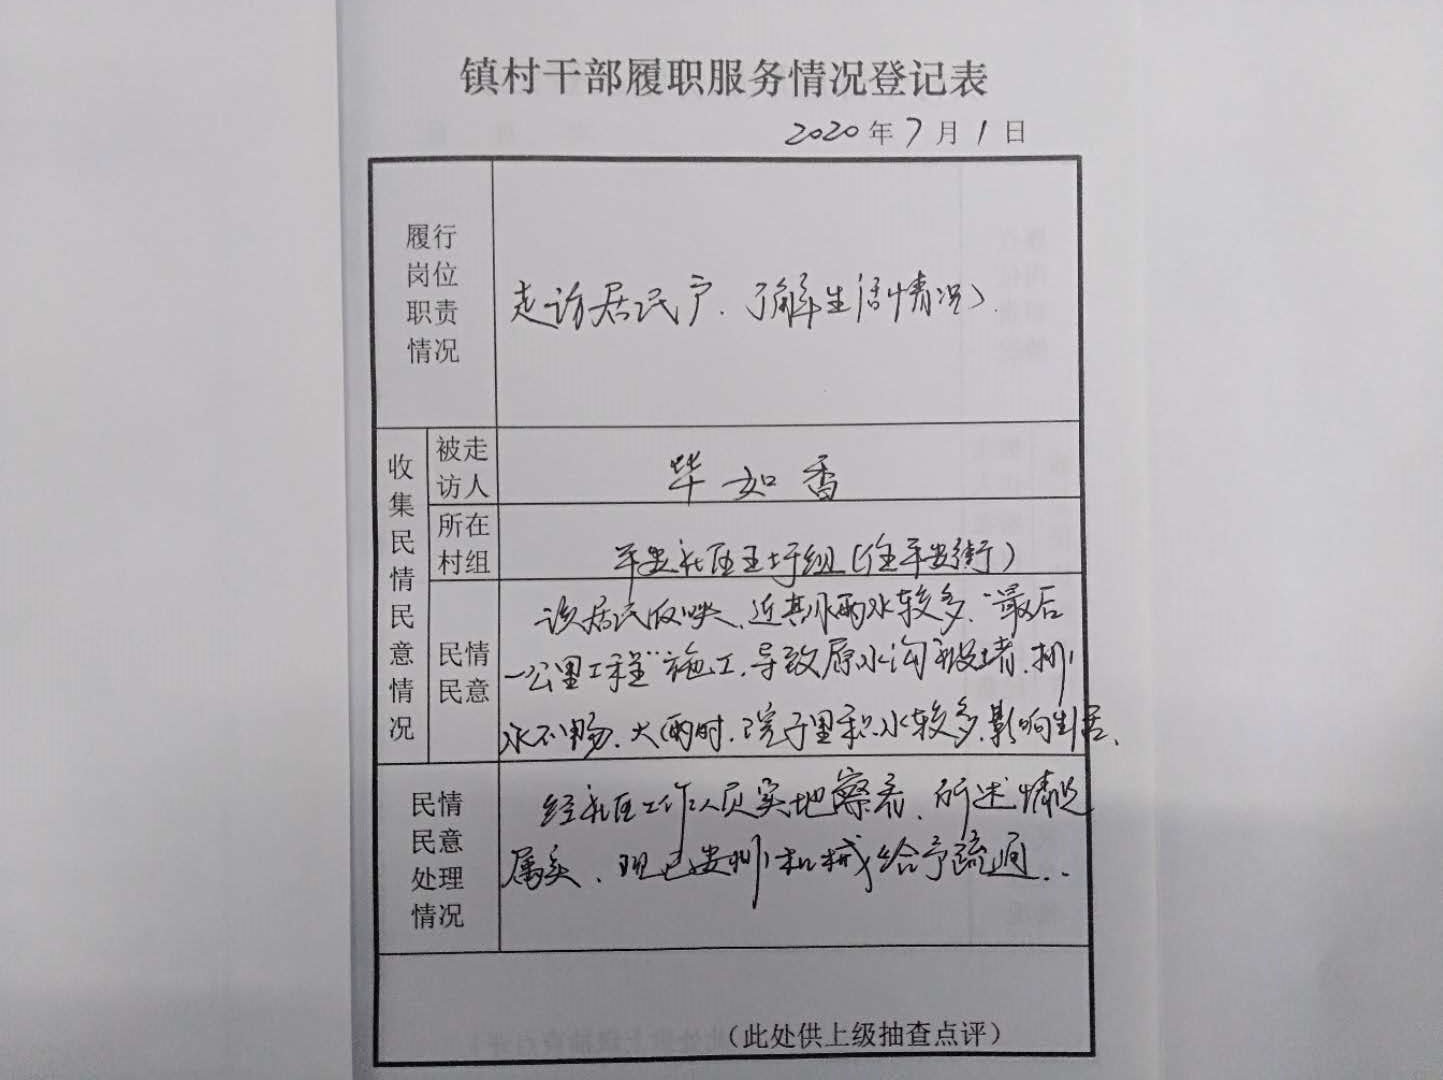 镇村干部履职服务情况登记表
2020年7月1日
履行
岗位
职责
情况
走访居民户、了解生活情况、
收集民情民意情况
被走
访人
毕如香
所在
村组
平安社区王圩组(住平安街)
民情
民意
该居民反映、近其水雨水较多、“最后
一公里工程”施工、导致原水沟被堵、排
水不畅、大雨时、院子里积水较多、影响生活、
民情
民意
处理
情况
经社区工作人员实地察看、所述情况
属实、现已安排机械给予疏通..
(此处供上级抽查点评)